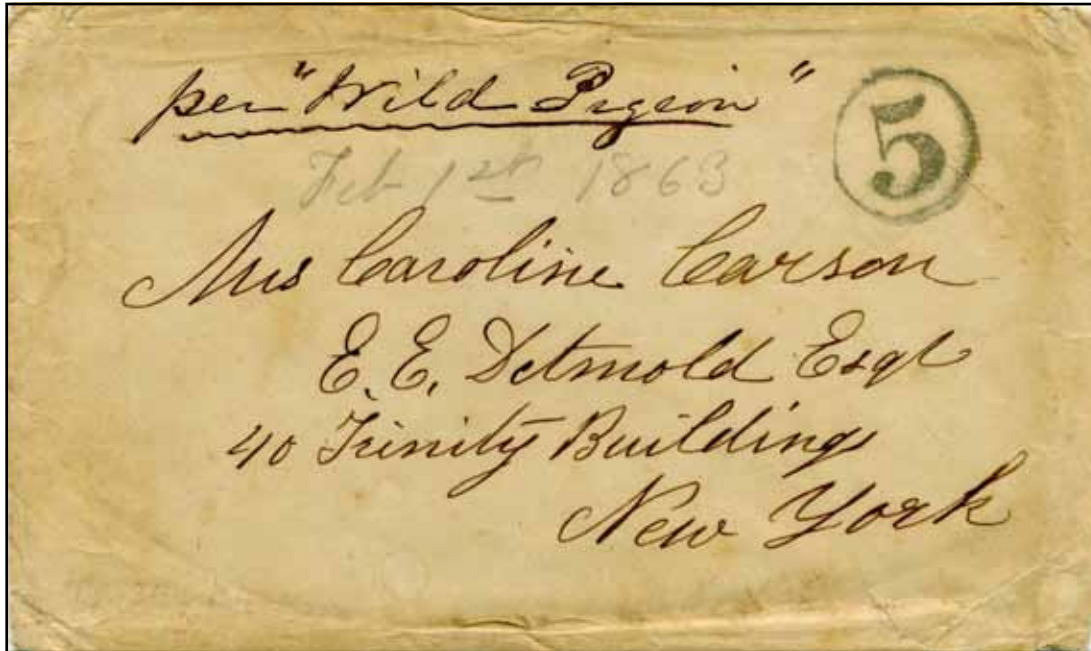 per "Wild Pigeon"
5
Feb 1st 1863
Mrs Caroline Carson
E. E. Detmold Esqr
40 Trinity Building
New York